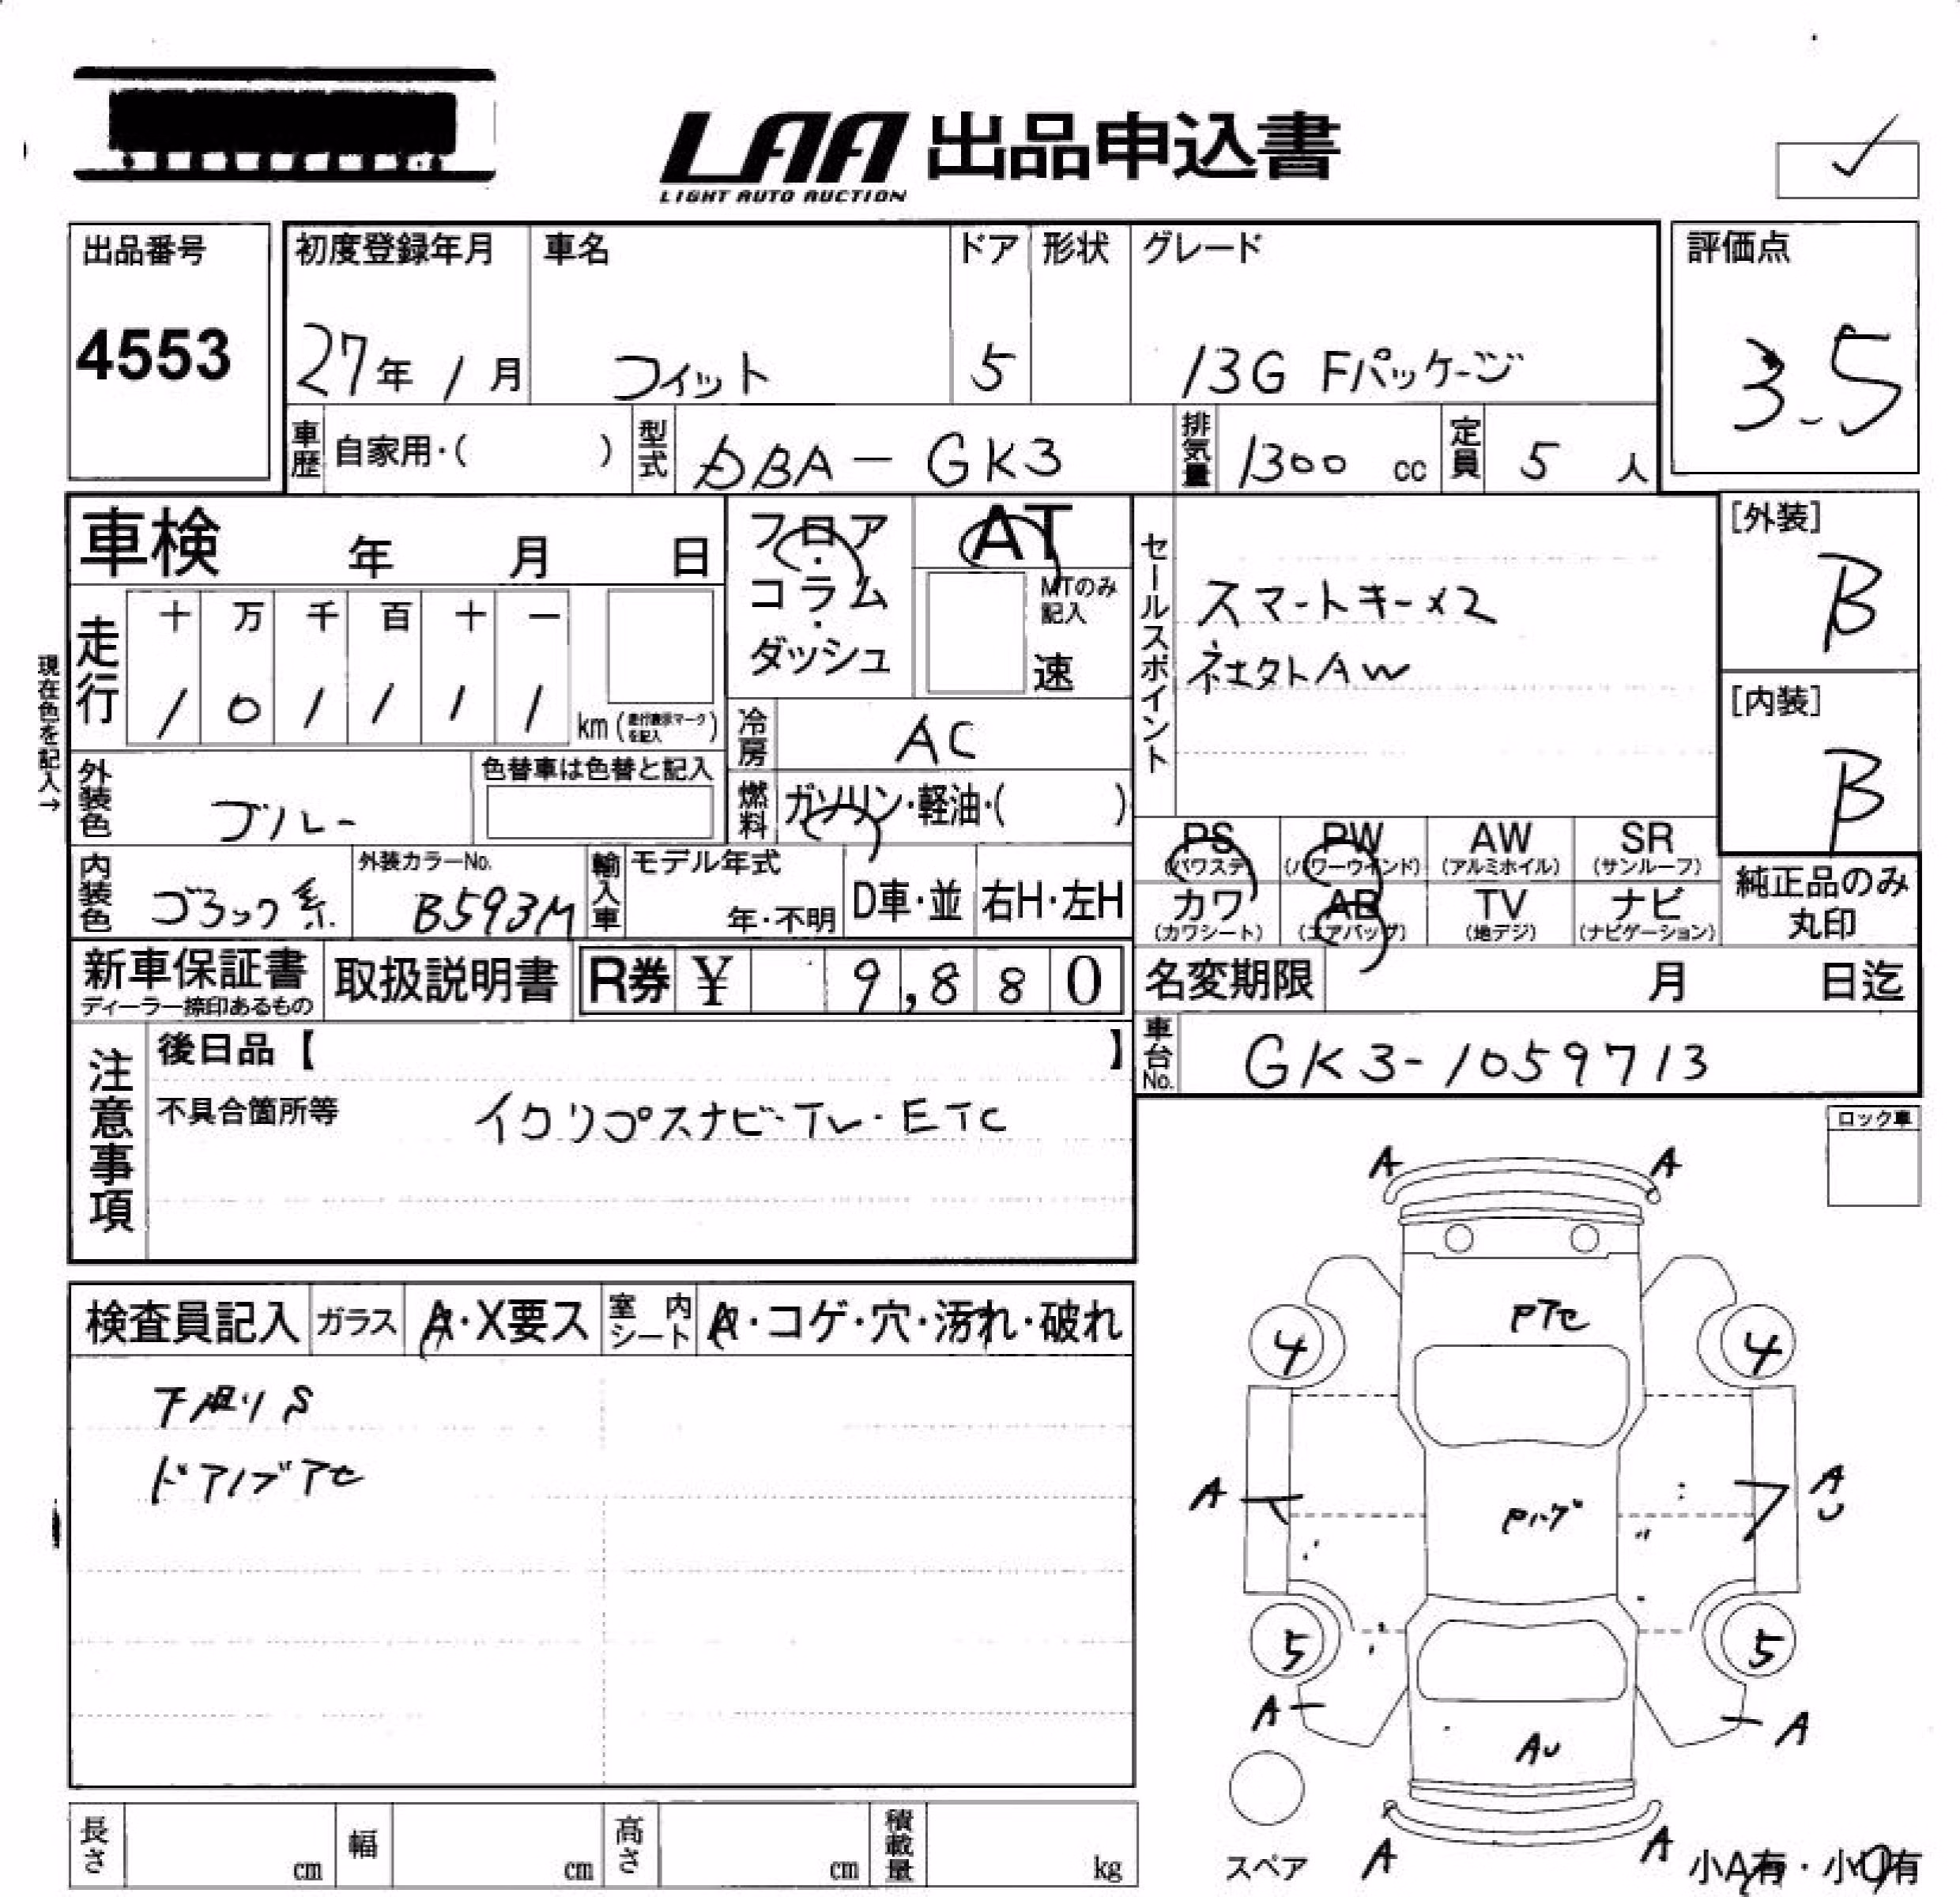 LAA 出品申込書
LIGHT AUTO AUCTION
出品番号
4553
初度登録年月
27年 1月
車名
フィット
ドア
5
形状
グレード
13G Fパッケージ
評価点
3.5
車歴
自家用・( )
型式
DBA-GK3
排気量
1300 cc
定員
5 人
車検 年 月 日
フロア
・
コラム
・
ダッシュ
AT
MTのみ
記入
速
セールスポイント
スマートキー×2
AW
[外装]
B
[内装]
B
現在色を記入→
走行
十 万 千 百 十 一
1 0 1 1 1 1
km(走行表示マークを記入)
冷房
AC
外装色
ブルー
色替車は色替と記入
燃料
ガソリン・軽油・( )
PS
(パワステ)
PW
(パワーウインド)
AW
(アルミホイル)
SR
(サンルーフ)
カワ
(カワシート)
AB
(エアバッグ)
TV
(地デジ)
ナビ
(ナビゲーション)
純正品のみ
丸印
内装色
ブラック系
外装カラーNo.
B593M
輸入車
モデル年式
年・不明
D車・並
右H・左H
新車保証書
ディーラー捺印あるもの
取扱説明書
R券 ¥ 9,880
名変期限 月 日迄
車台No.
GK3-1059713
注意事項
後日品【 】
不具合箇所等
イクリプスナビ・TV・ETC
ロック車
検査員記入
ガラス
A・X要ス
室内
シート
A・コゲ・穴・汚れ・破れ
下廻りS
ドアノブアセ
A A
Pアセ
4 4
A A
U
Pハゲ
5 5
A A
AU
A A
スペア
小A有・小U有
長さ cm
幅 cm
高さ cm
積載量 kg